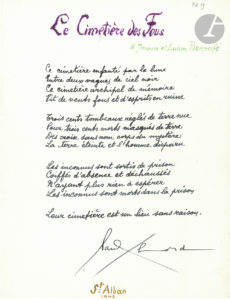 Le Cimetière des Fous
à Yvonne et Lucien Bonnafé
Ce cimetière enfanté par la lune
Entre deux vagues de ciel noir
Ce cimetière archipel de mémoire
Vit de vents fous et d'esprits en ruine
Trois cents tombeaux réglés de terre nue
Pour trois cents morts masqués de terre
Des croix sans nom corps du mystère
La terre éteinte et l'homme disparu
Les inconnus sont sortis de prison
Coiffés d'absence et déchaussés
N'ayant plus rien à espérer
Les inconnus sont morts dans la prison
Leur cimetière est un lieu sans raison.
St Alban
1943